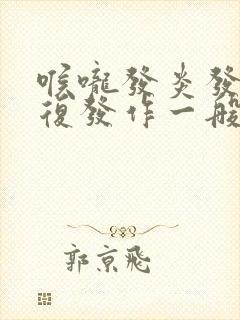 喉嚨發炎發
復發作一般
郭京飛